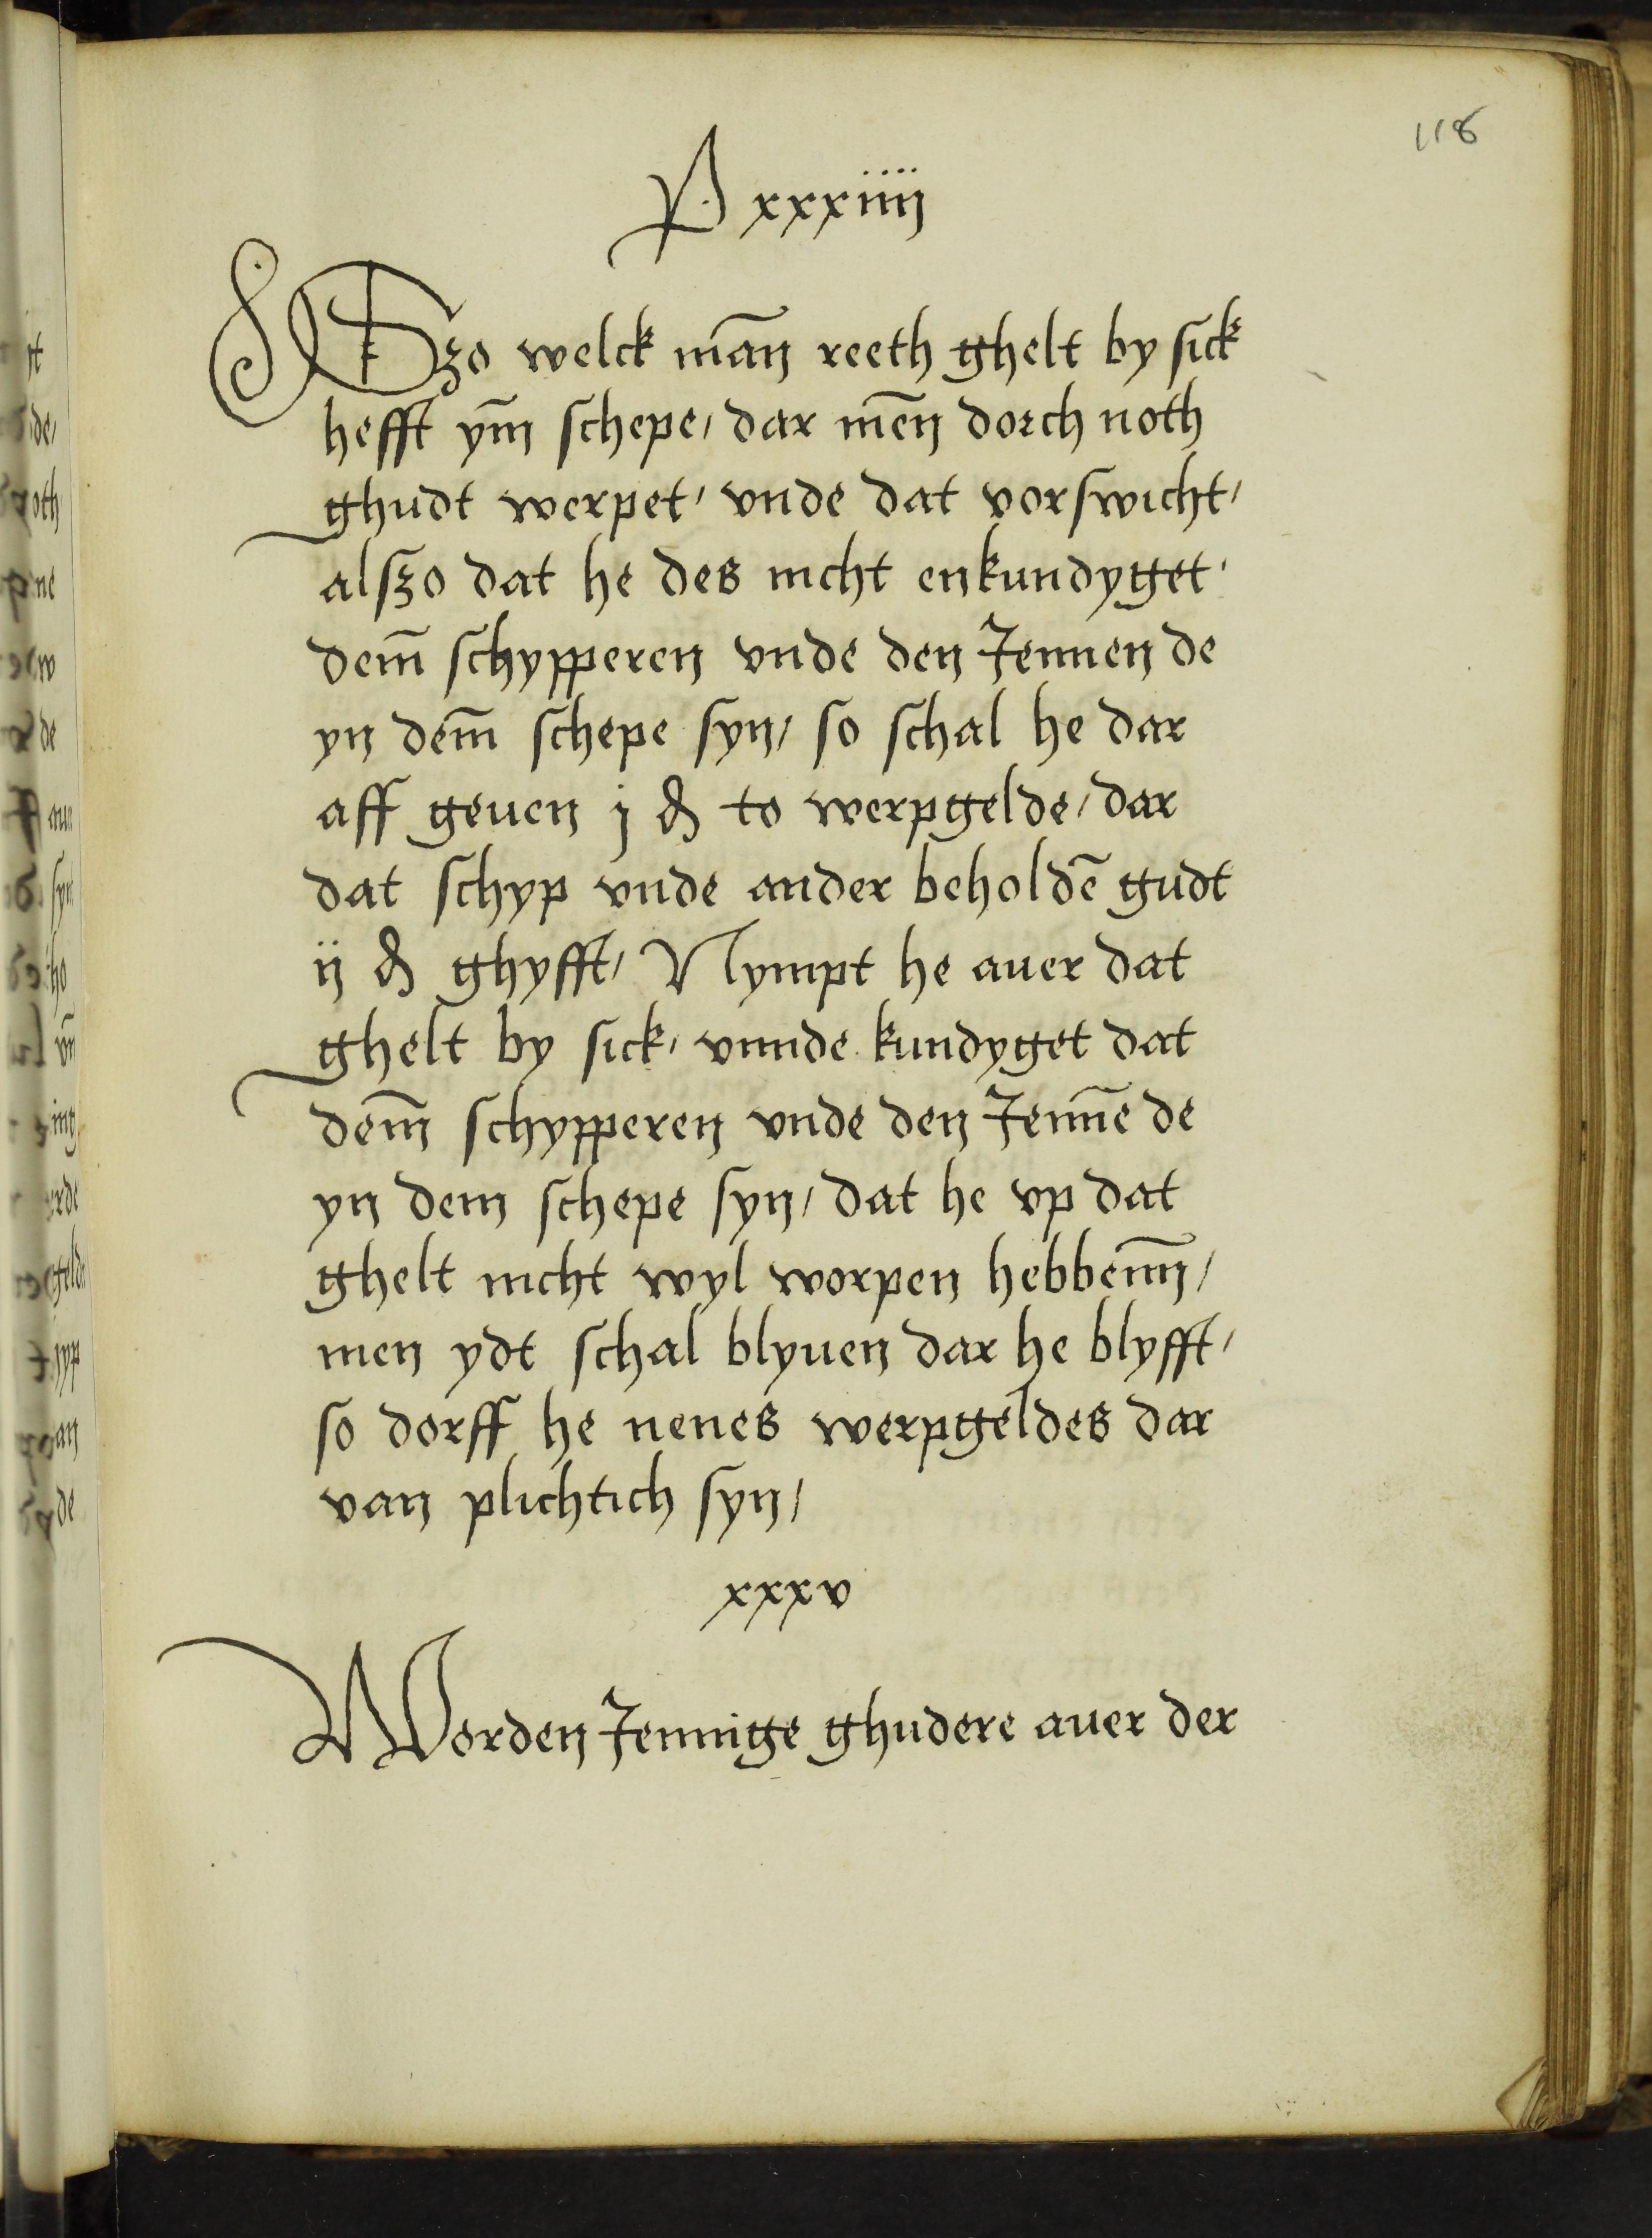 118
P xxxiiij
Szo welck mañ reeth ghelt by sick
hefft ym̄ schepe/ dar mēn dorch noth
ghudt werpet/ vnde dat vorswicht/
alszo dat he des nicht enkundyget/
dem̄ schypperen vnde den Jennen de
yn dem̄ schepe syn/ so schal he dar
aff geuen j ₰ to werpgelde/ dar
dat schyp vnde ander beholdē gudt
ij ₰ ghyfft/ Nympt he auer dat
ghelt by sick/ vnnde kundyget dat
dem̄ schypperen vnde den Jenn̄e de
yn dem schepe syn/ dat he vp dat
ghelt nicht wyl worpen hebbenn̄/
men ydt schal blyuen dar he blyfft/
so dorff he nenes werpgeldes dar
van plichtich syn/
xxxv
Worden Jennige ghudere auer der